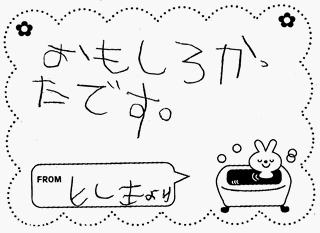 おもしろかっ
たです。
FROM としまより